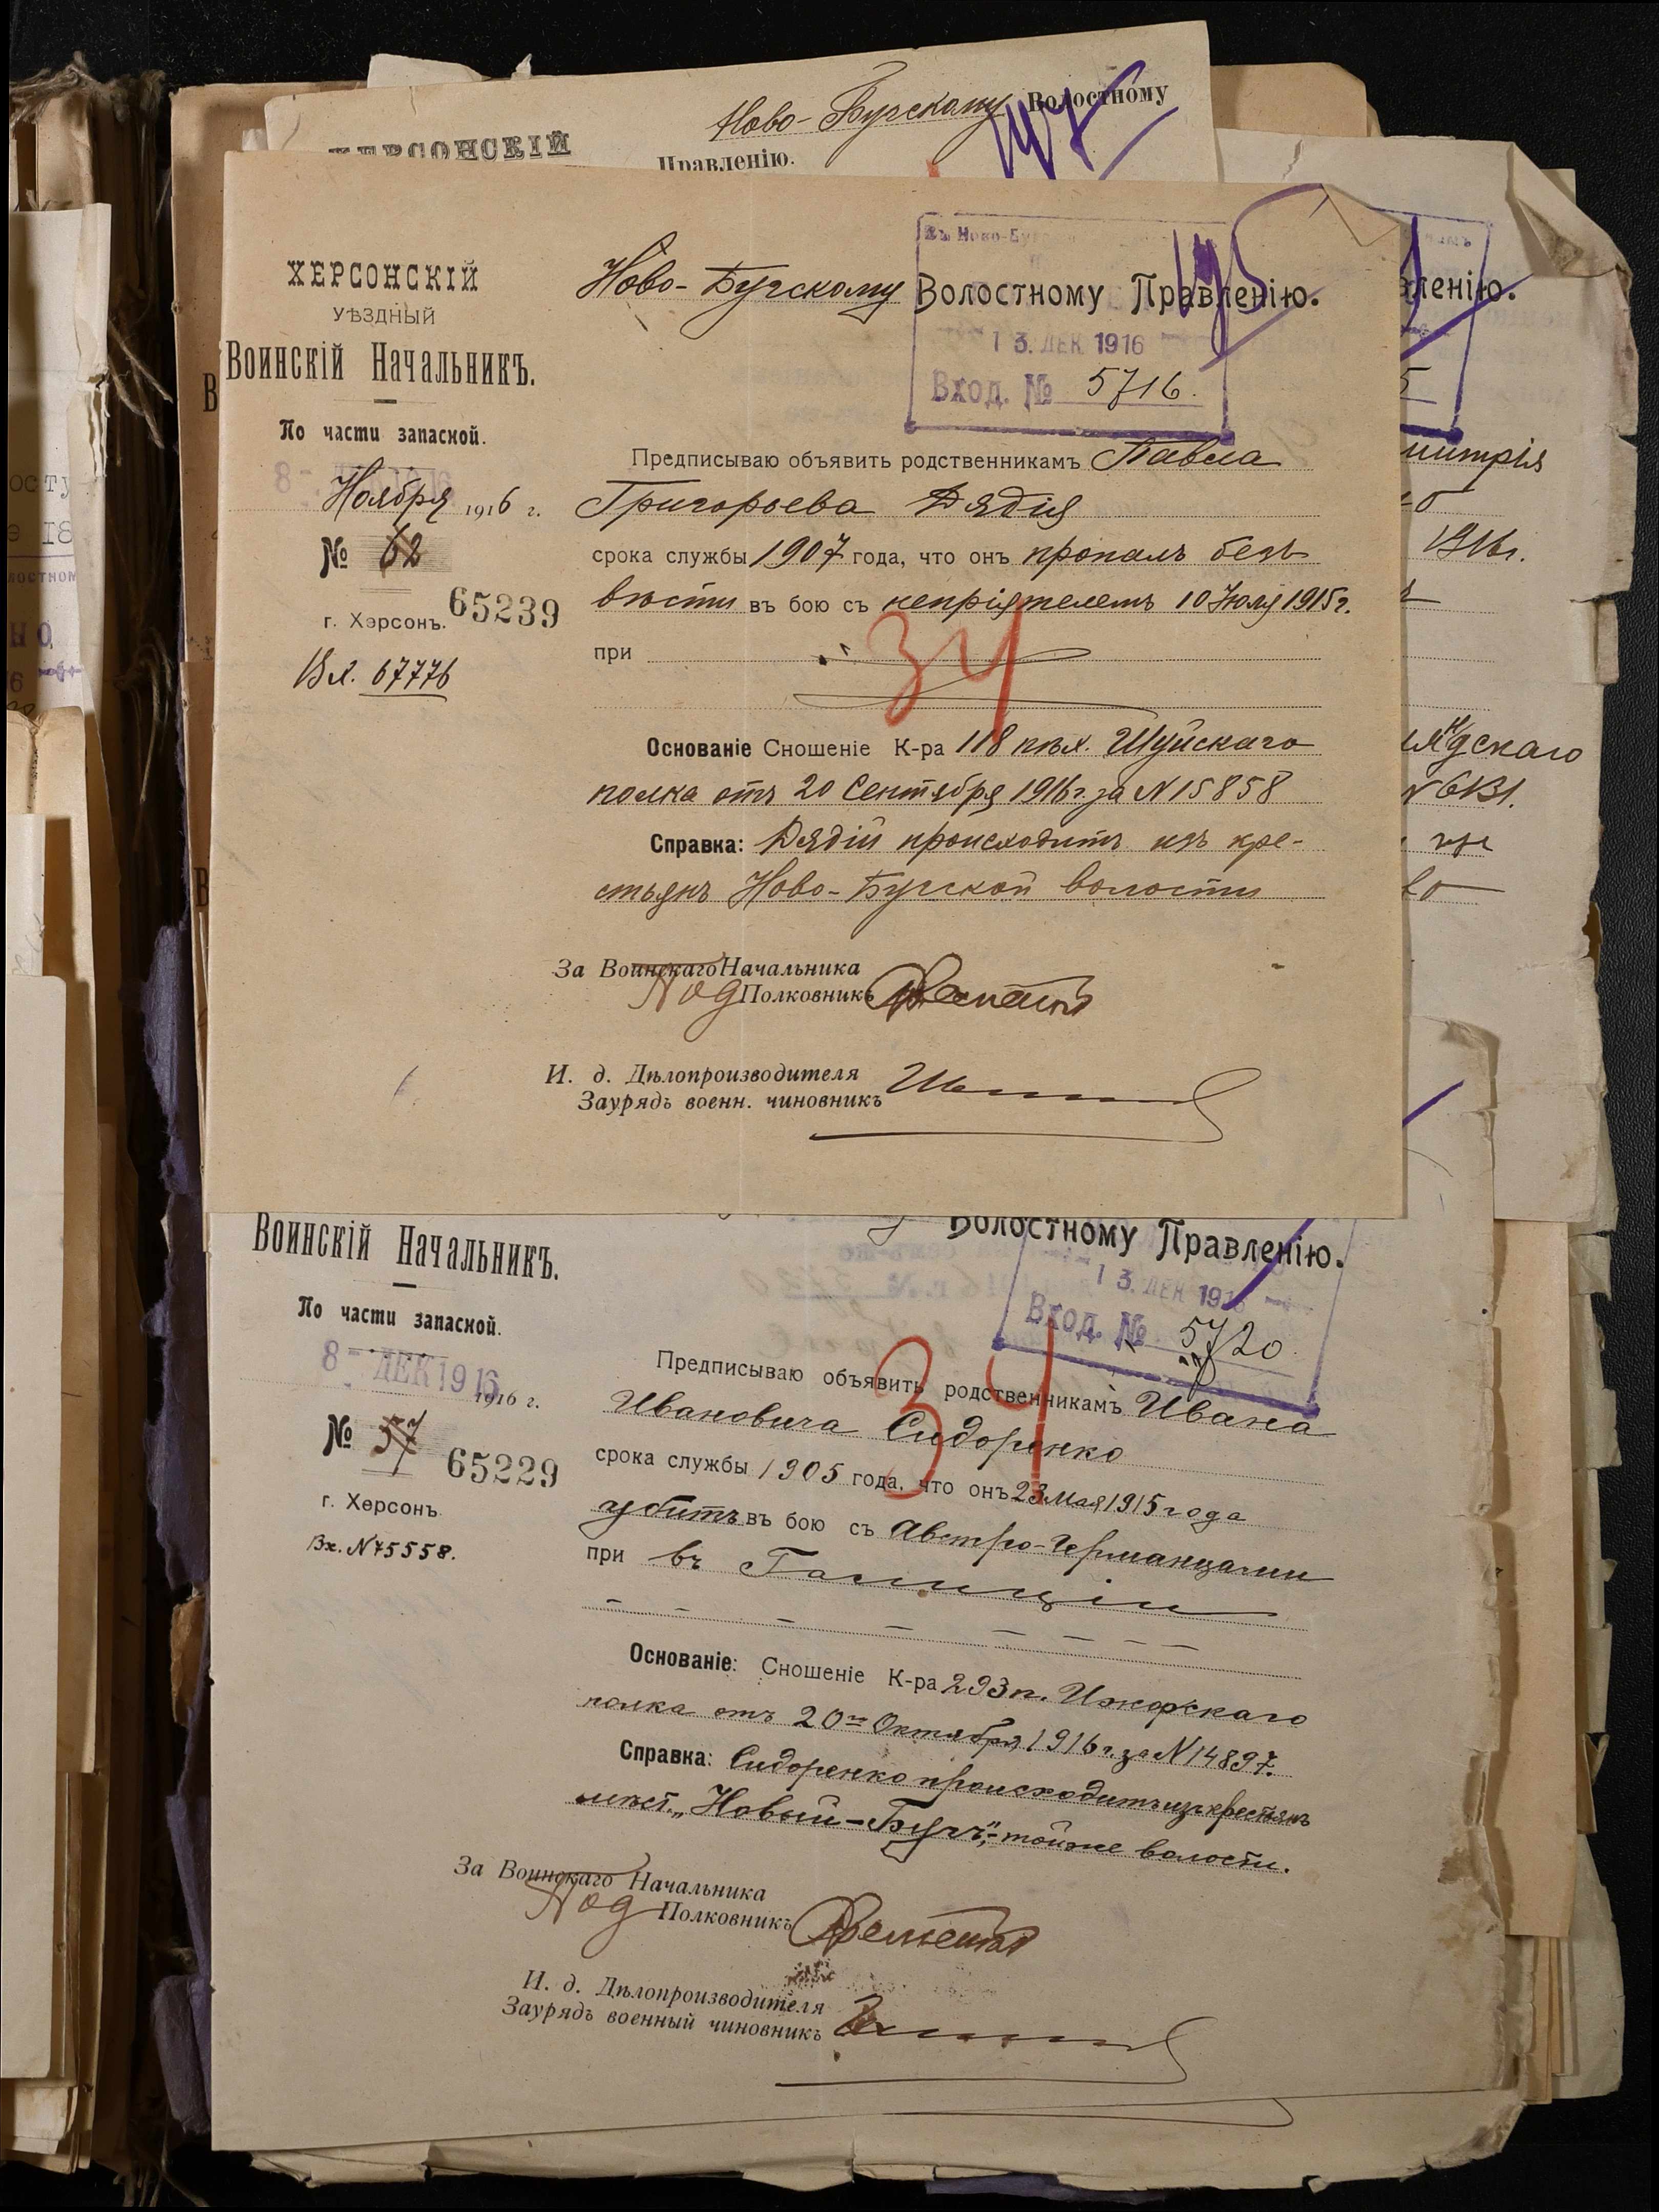 Ново-Бугскому Волостному
Правленію.
ХЕРСОНСКІЙ
ХЕРСОНСКІЙ
УѢЗДНЫЙ
ВОИНСКІЙ НАЧАЛЬНИКЪ.
По части запасной.
8 - ДЕК 1916
Ноября 1916 г.
№ 62
65239
г. Херсонъ.
Вх. 67776
195
Ново-Бугскому Волостному Правленію.
13. ДЕК 1916
Вход. № 5716.
Предписываю объявить родственникамъ Павла
Григорьева Дядія
срока службы 1907 года, что онъ пропалъ безъ
вѣсти въ бою съ непріятелемъ 10 Июля 1915 г.
при
34
Основаніе Сношеніе К-ра 118 пѣх. Шуйскаго
полка отъ 20 Сентября 1916 г. за N 15858
Справка: Дядій происходитъ изъ кре-
стьянъ Ново-Бугской волости
За Воинскаго Начальника
Под Полковникъ
И. д. Дѣлопроизводителя
Заурядъ военн. чиновникъ
вленію.
5
митрія
1916 г.
дскаго
ВОИНСКІЙ НАЧАЛЬНИКЪ.
По части запасной.
8 - ДЕК 1916
1916 г.
№ 57
65229
г. Херсонъ
Вх. N 75558.
Волостному Правленію.
13. ДЕК 1916
Вход. № 5720
Предписываю объявить родственникамъ Ивана
Ивановича Сидоренко
34
срока службы 1905 года, что онъ 23 Мая 1915 года
убитъ въ бою съ Австро-Германцами
при въ Галиціи
Основаніе: Сношеніе К-ра 293 п. Ижорскаго
полка отъ 20го Октября 1916 г. за N 14897.
Справка: Сидоренко происходитъ изъ крестьянъ
мѣст. „Новый-Бугъ", той-же волости.
За Воинскаго Начальника
Под Полковникъ
И. д. Дѣлопроизводителя
Заурядъ военный чиновникъ